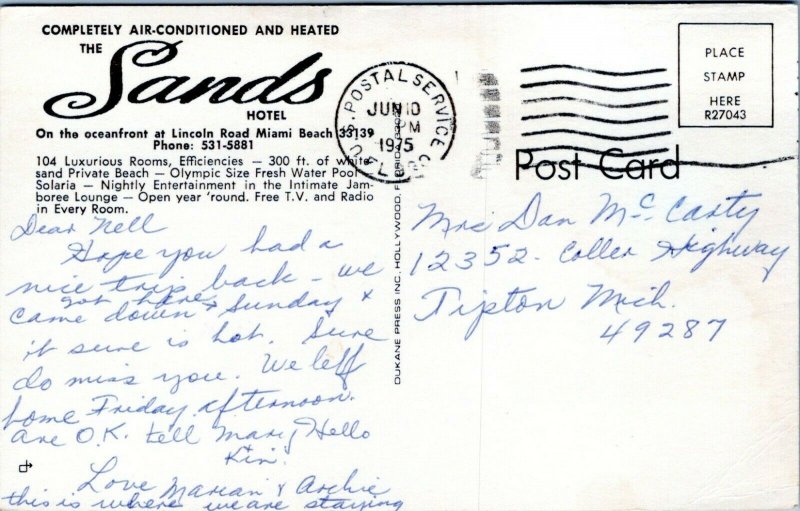 COMPLETELY AIR-CONDITIONED AND HEATED
THE
Sands
HOTEL
On the oceanfront at Lincoln Road Miami Beach 33139
Phone: 531-5881
104 Luxurious Rooms, Efficiencies — 300 ft. of white
sand Private Beach — Olympic Size Fresh Water Pool
Solaria — Nightly Entertainment in the Intimate Jam-
boree Lounge — Open year 'round. Free T.V. and Radio
in Every Room.
Dear Nell
Hope you had a
nice trip back - we
got here
came down Sunday &
it sure is hot. Sure
do miss you. We left
home Friday afternoon.
are O.K. tell Mary Hello
Love Marian & Archie
this is where we are staying
DUKANE PRESS INC. HOLLYWOOD, FLORIDA
U.S. POSTAL SERVICE
JUN 10
PM
1975
FL
PLACE
STAMP
HERE
R27043
Post Card
Mrs Dan McCarty
12352 - Coller Highway
Tipton Mich.
49287